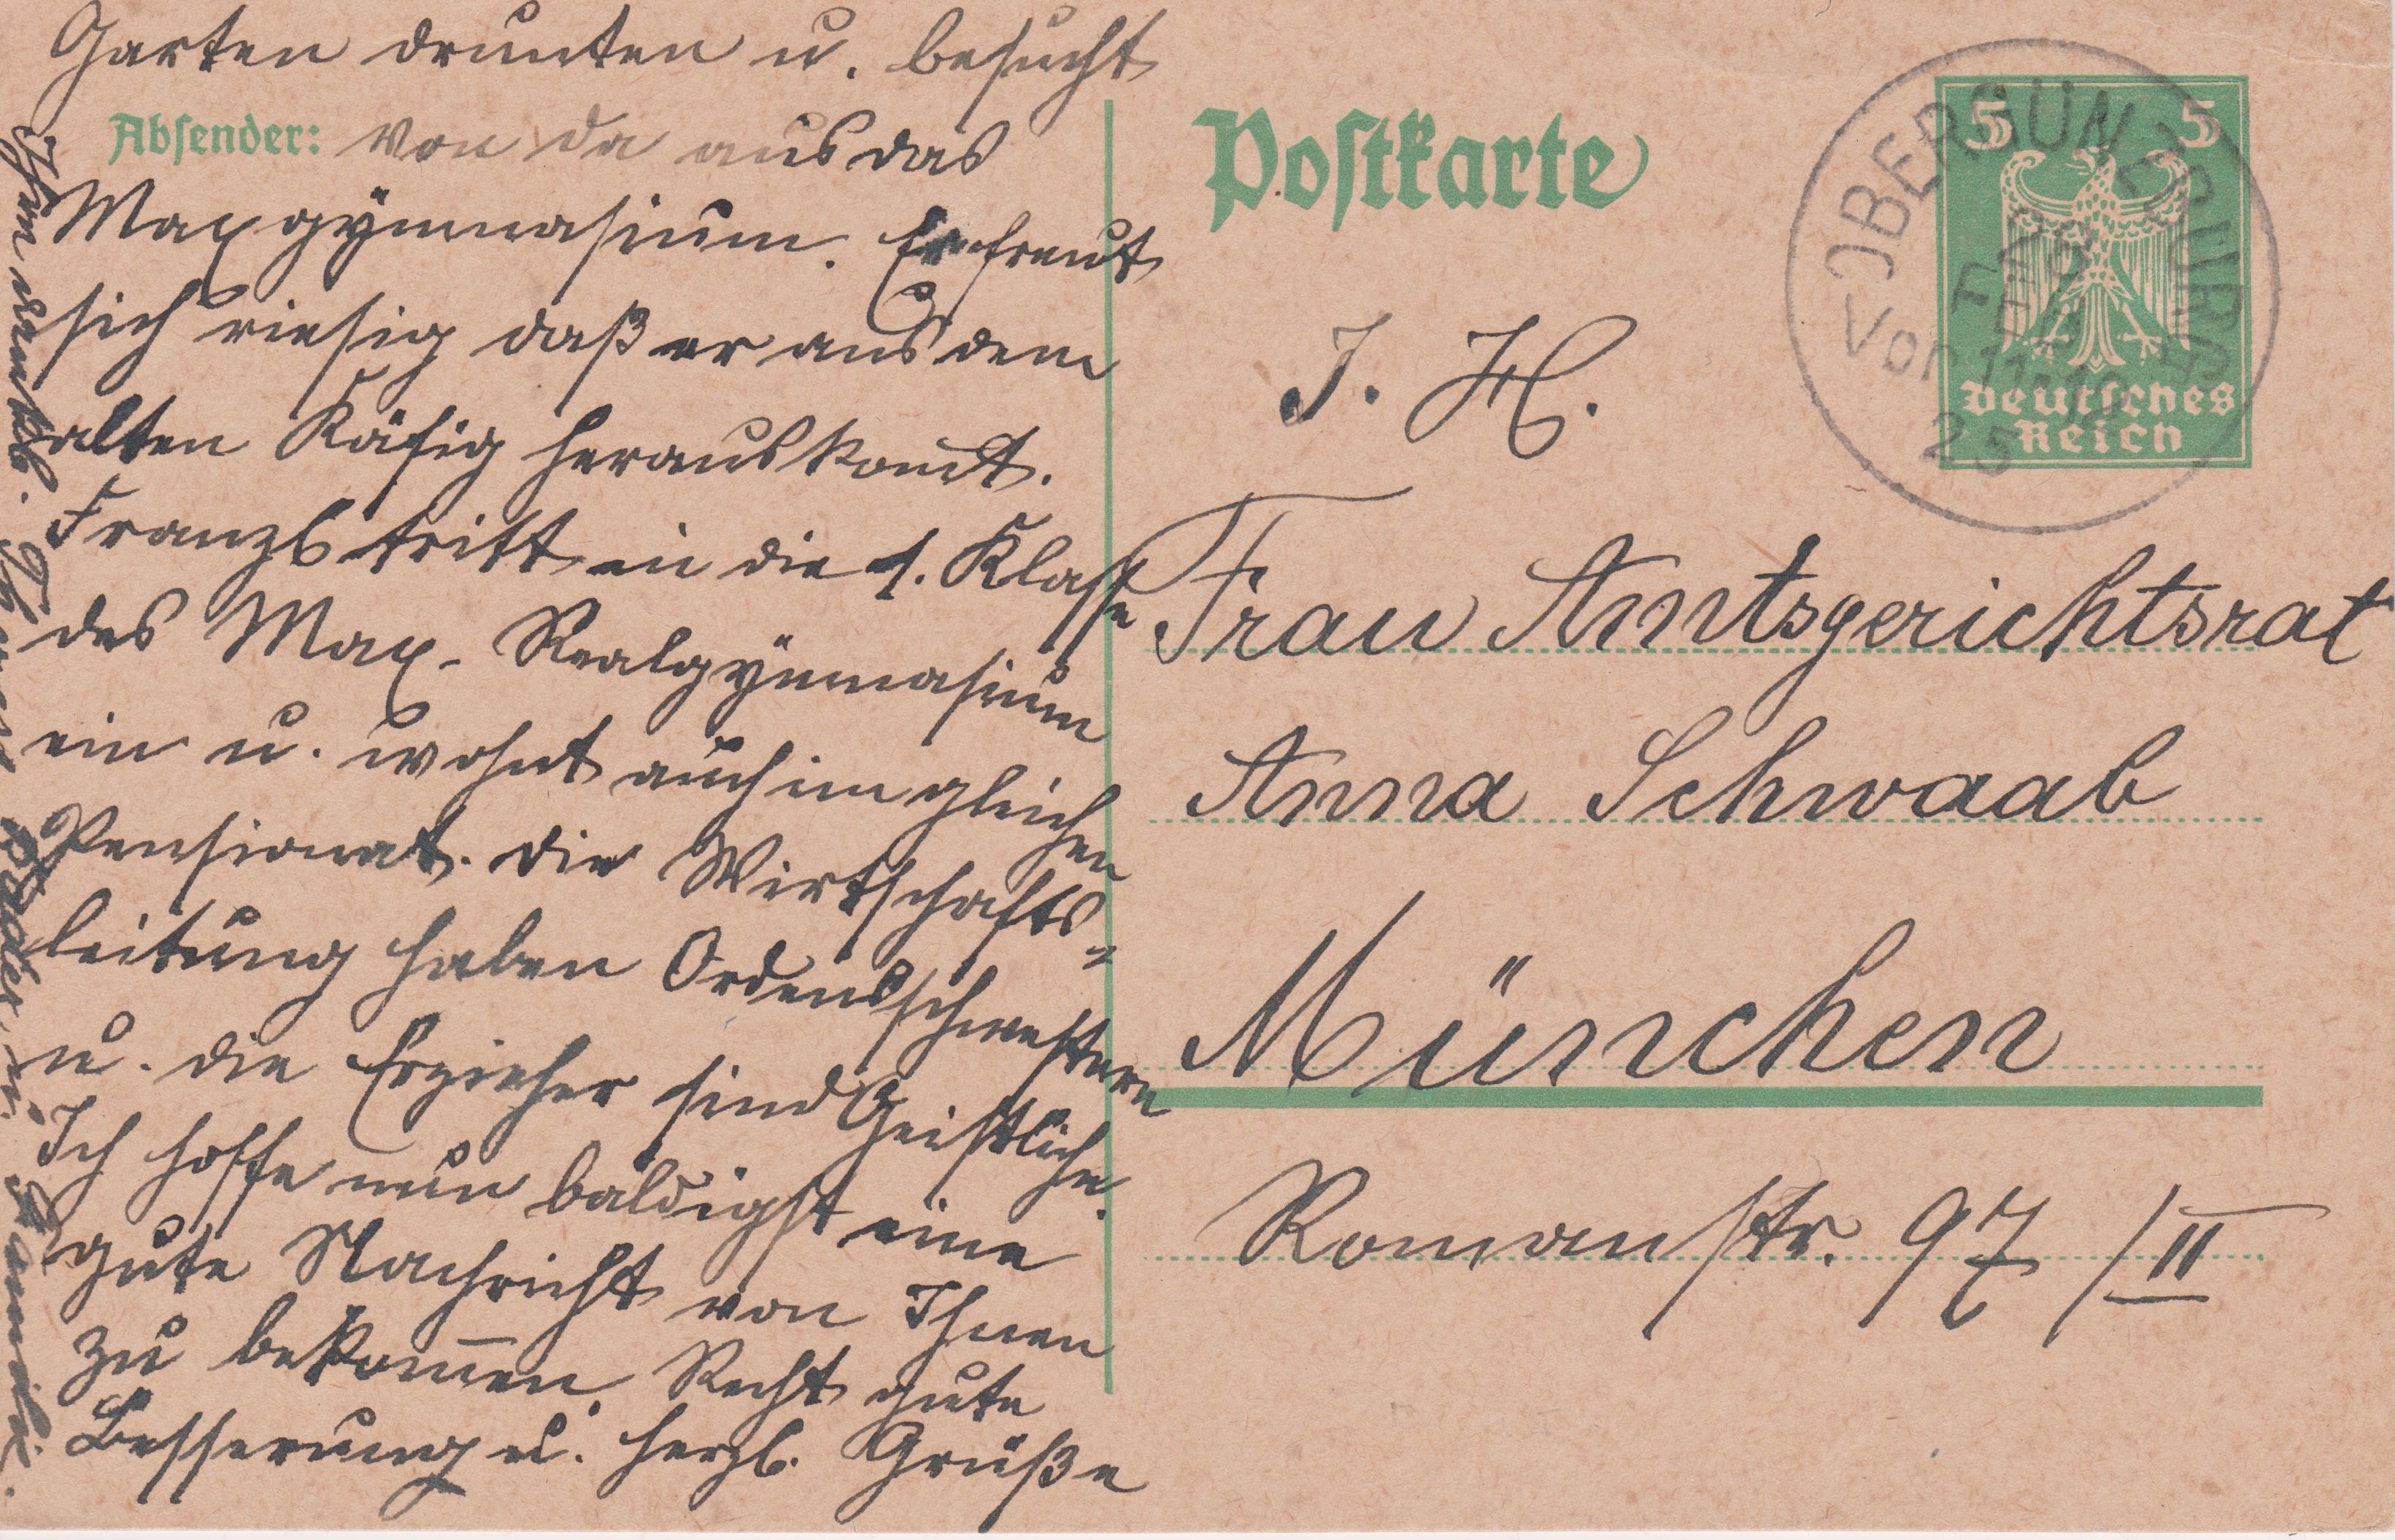 Garten drunten u. besucht
Absender: von da aus das
Maxgymnasium. Er freut
sich riesig daß er aus dem
alten Käfig herauskomt.
Franzl tritt in die 1. Klasse
des Max-Realgymnasium
ein u. wohnt auch im gleichen
Pensionat. Die Wirtschafts-
leitung haben Ordensschwestern
u. die Erzieher sind Geistliche.
Ich hoffe nun baldigst eine
gute Nachricht von Ihnen
zu bekom̄en. Recht gute
Besserung u. herzl. Grüße
Ihre dankb.
Postkarte
5 5
Deutsches
Reich
Vor 11-12
25
I. H.
Frau Amtsgerichtsrat
Anna Schwaab
München
Romanstr. 97/II